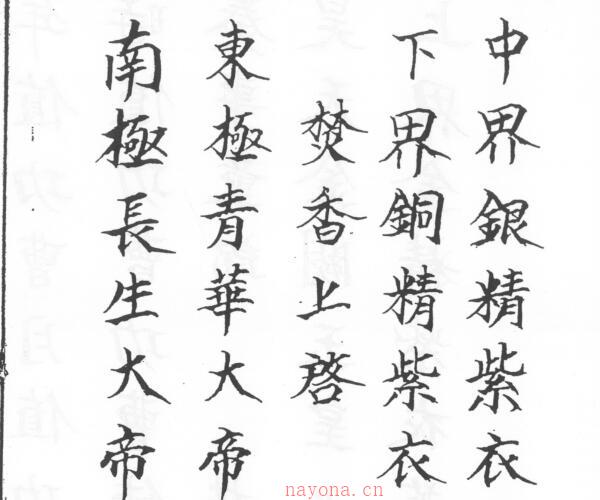 中界銀精紫衣
下界銅精紫衣
焚香上啓
東極青華大帝
南極長生大帝
nayona.cn